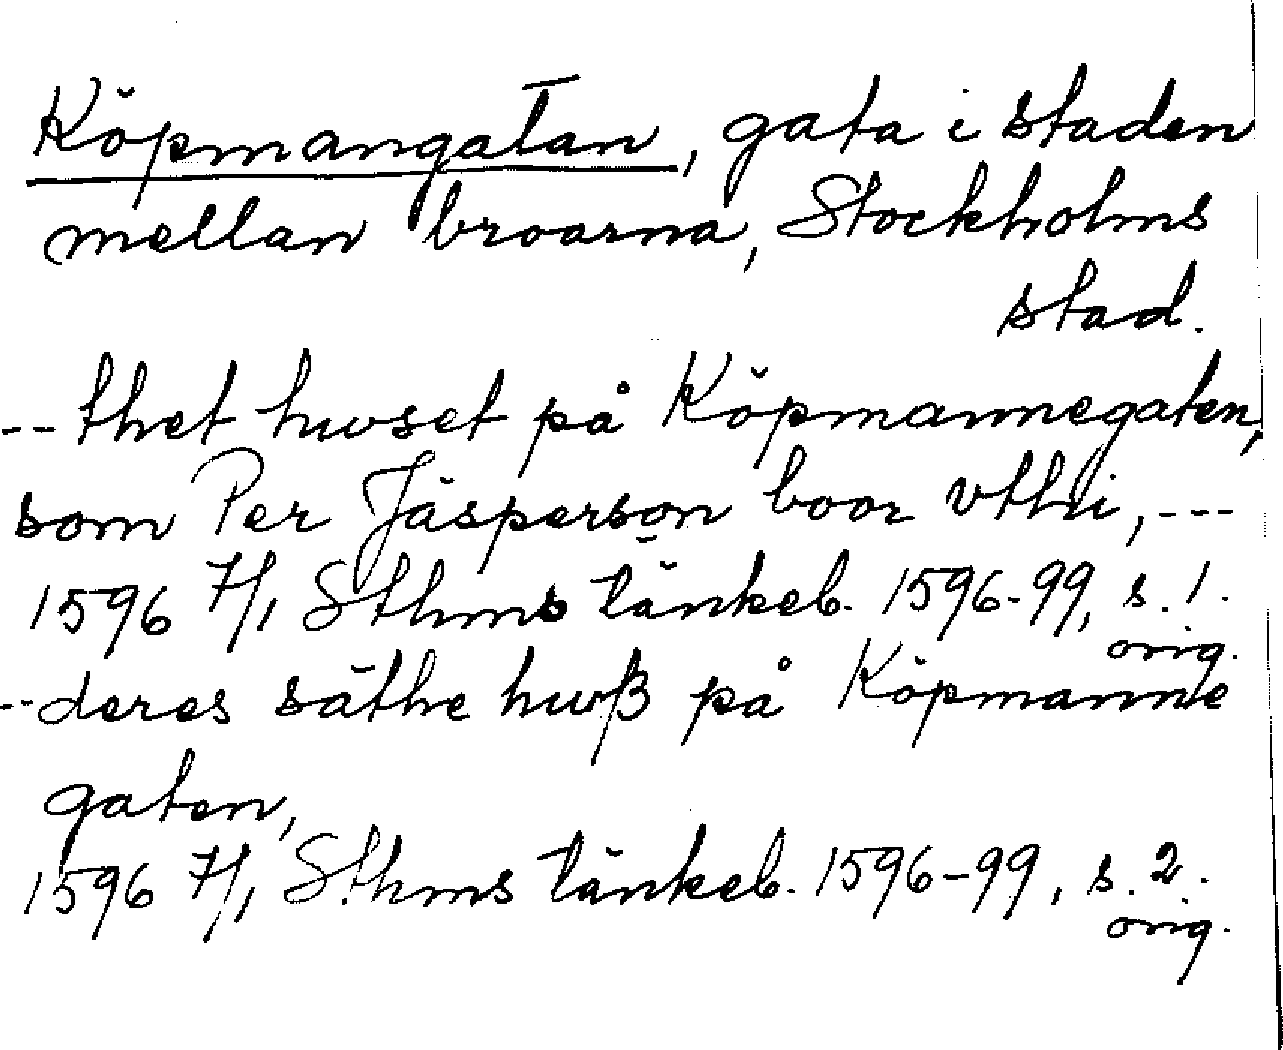 Köpmangatan, gata i staden
mellan broarna, Stockholms
stad.
-- thet huset på Köpmannegaten,
som Per Jäsperson boor vthi, ---
1596 7/1 Sthms tänkeb. 1596-99, s. 1.
orig.
-- deres säthe huß på Köpmanne
gaten,
1596 7/1 Sthms tänkeb. 1596-99, s. 2.
orig.